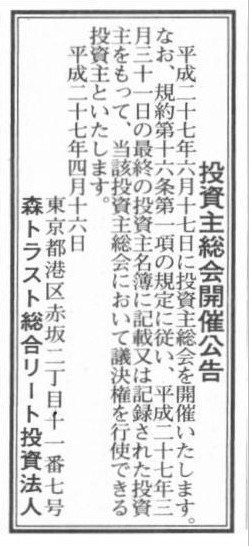 投資主総会開催公告
平成二十七年六月十七日に投資主総会を開催いたします。
なお、規約第十六条第一項の規定に従い、平成二十七年三
月三十一日の最終の投資主名簿に記載又は記録された投資
主をもって、当該投資主総会において議決権を行使できる
投資主といたします。
平成二十七年四月十六日
東京都港区赤坂二丁目十一番七号
森トラスト総合リート投資法人